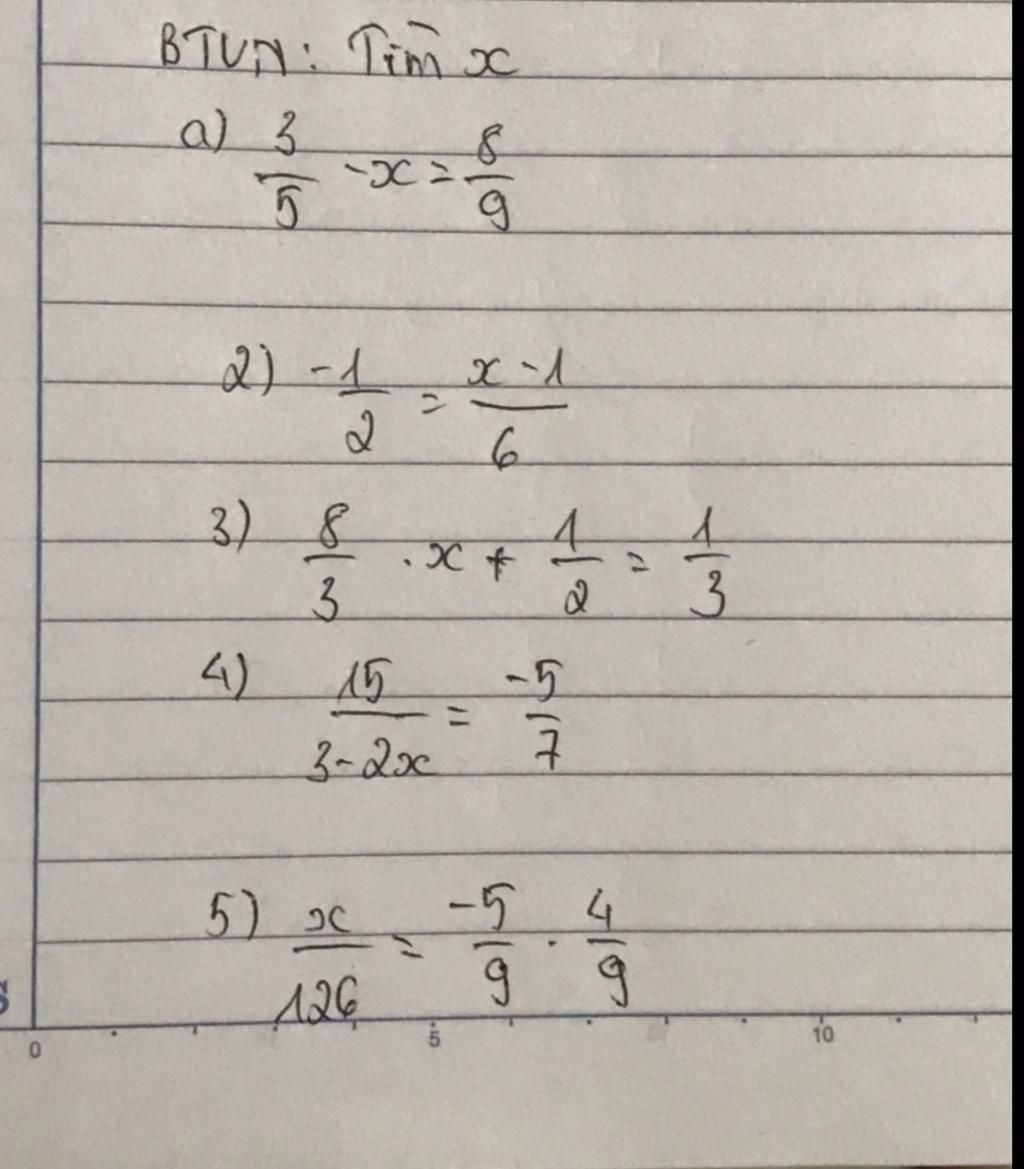 BTVN: Tìm x
a) 3/5 - x = 8/9
2) -1/2 = x - 1/6
3) 8/3 . x + 1/2 = 1/3
4) 15/3-2x = -5/7
5) x/126 = -5/9 . 4/9
0 5 10